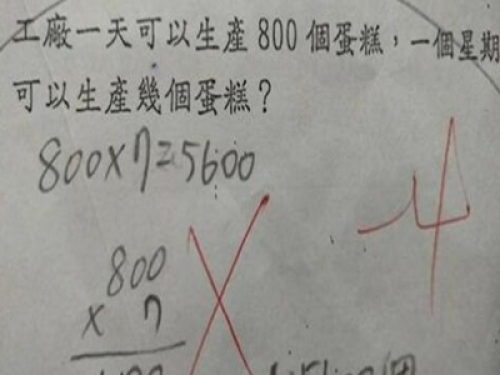 工廠一天可以生產 800 個蛋糕，一個星期
可以生產幾個蛋糕？
800×7=5600
-4
800
× 7